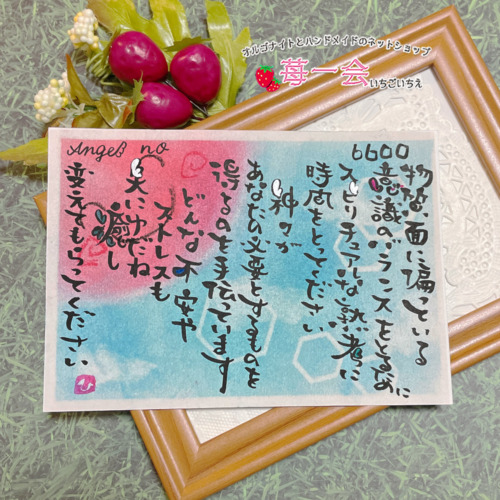 オルゴナイトとハンドメイドのネットショップ
苺一会 いちごいちえ
Angel's no 6600
物質面に偏っている
意識のバランスをとるために
スピリチュアルな熟考に
時間をとってください
神々が
あなたの必要とするものを
得るのを手伝っています
どんな不安や
ストレスも
天にゆだね
癒し
変えてもらってください